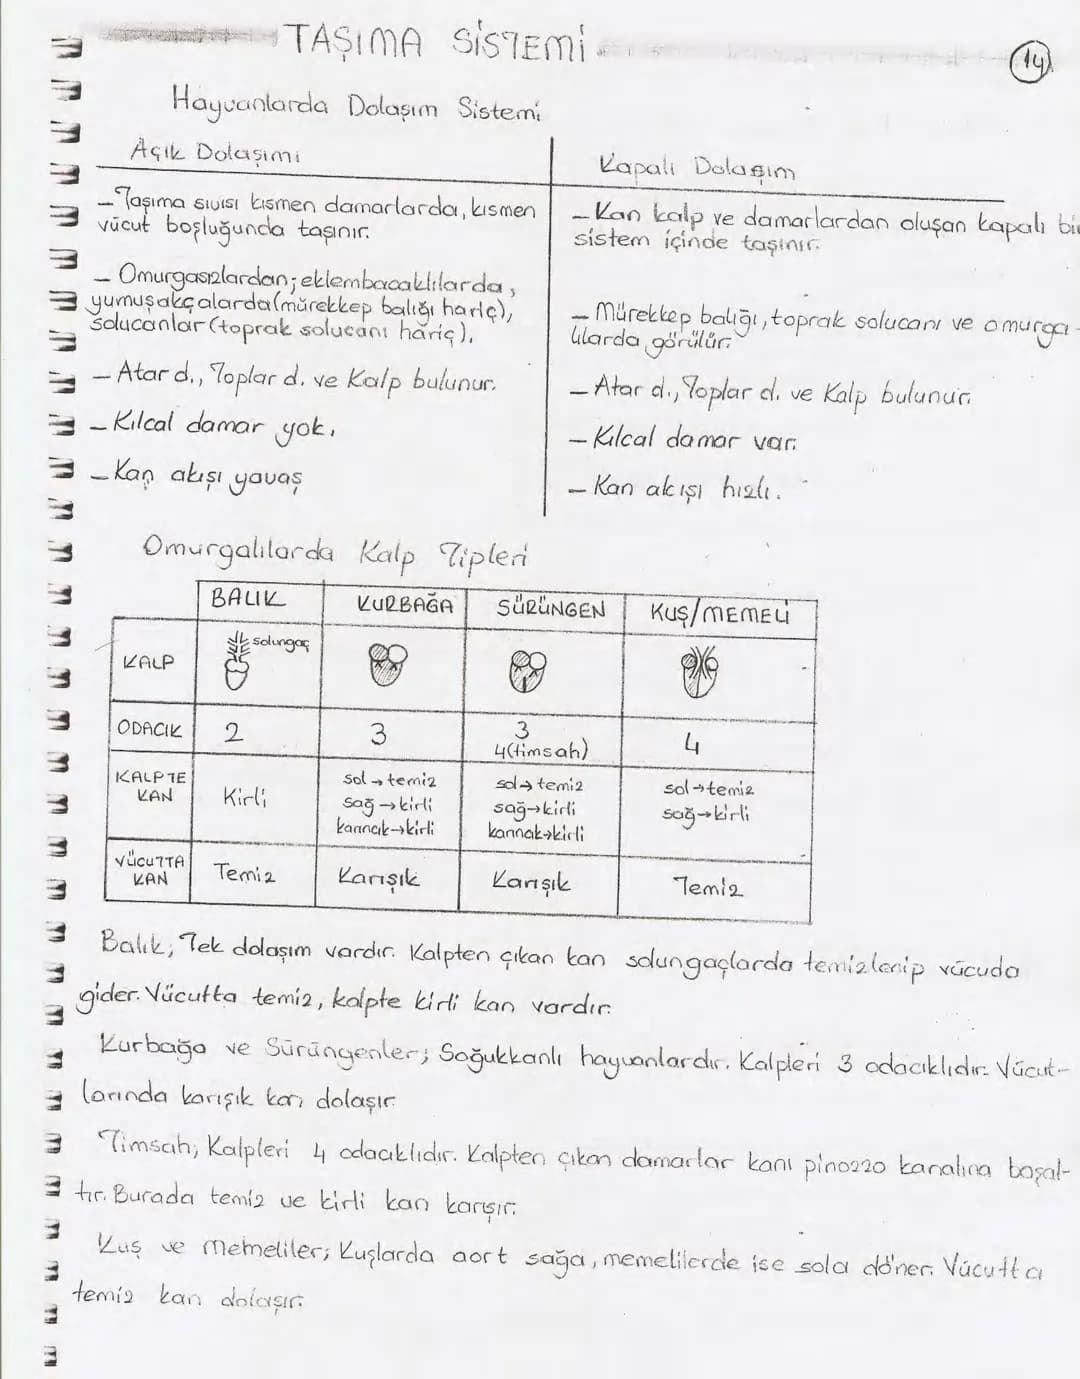 TAŞIMA SİSTEMİ
14
Hayvanlarda Dolaşım Sistemi
Açık Dolaşımı
- Taşıma sıvısı kısmen damarlarda, kısmen
vücut boşluğunda taşınır.
- Omurgasızlardan; eklembacaklılarda,
yumuşakçalarda (mürekkep balığı hariç),
solucanlar (toprak solucanı hariç).
- Atar d., Toplar d. ve Kalp bulunur.
- Kılcal damar yok.
- Kan akışı yavaş
Kapalı Dolaşım
- Kan kalp ve damarlardan oluşan kapalı bir
sistem içinde taşınır.
- Mürekkep balığı, toprak solucanı ve omurga-
lılarda görülür.
- Atar d., Toplar d. ve Kalp bulunur.
- Kılcal damar var.
- Kan akışı hızlı.
Omurgalılarda Kalp Tipleri
BALIK KURBAĞA SÜRÜNGEN KUŞ/MEMELİ
KALP solungaç
ODACIK 2 3 3 4
4(timsah)
KALPTE KAN Kirli
sol→temiz
sağ→kirli
karıncık→kirli
sol→temiz
sağ→kirli
karıncık→kirli
sol→temiz
sağ→kirli
VÜCUTTA KAN Temiz Karışık Karışık Temiz
Balık; Tek dolaşım vardır. Kalpten çıkan kan solungaçlarda temizlenip vücuda
gider. Vücutta temiz, kalpte kirli kan vardır.
Kurbağa ve Sürüngenler; Soğukkanlı hayvanlardır. Kalpleri 3 odacıklıdır. Vücut-
larında karışık kan dolaşır.
Timsah; Kalpleri 4 odacıklıdır. Kalpten çıkan damarlar kanı pinozzo kanalına boşal-
tır. Burada temiz ve kirli kan karışır.
Kuş ve Memeliler; Kuşlarda aort sağa, memelilerde ise sola döner. Vücutta
temiz kan dolaşır.